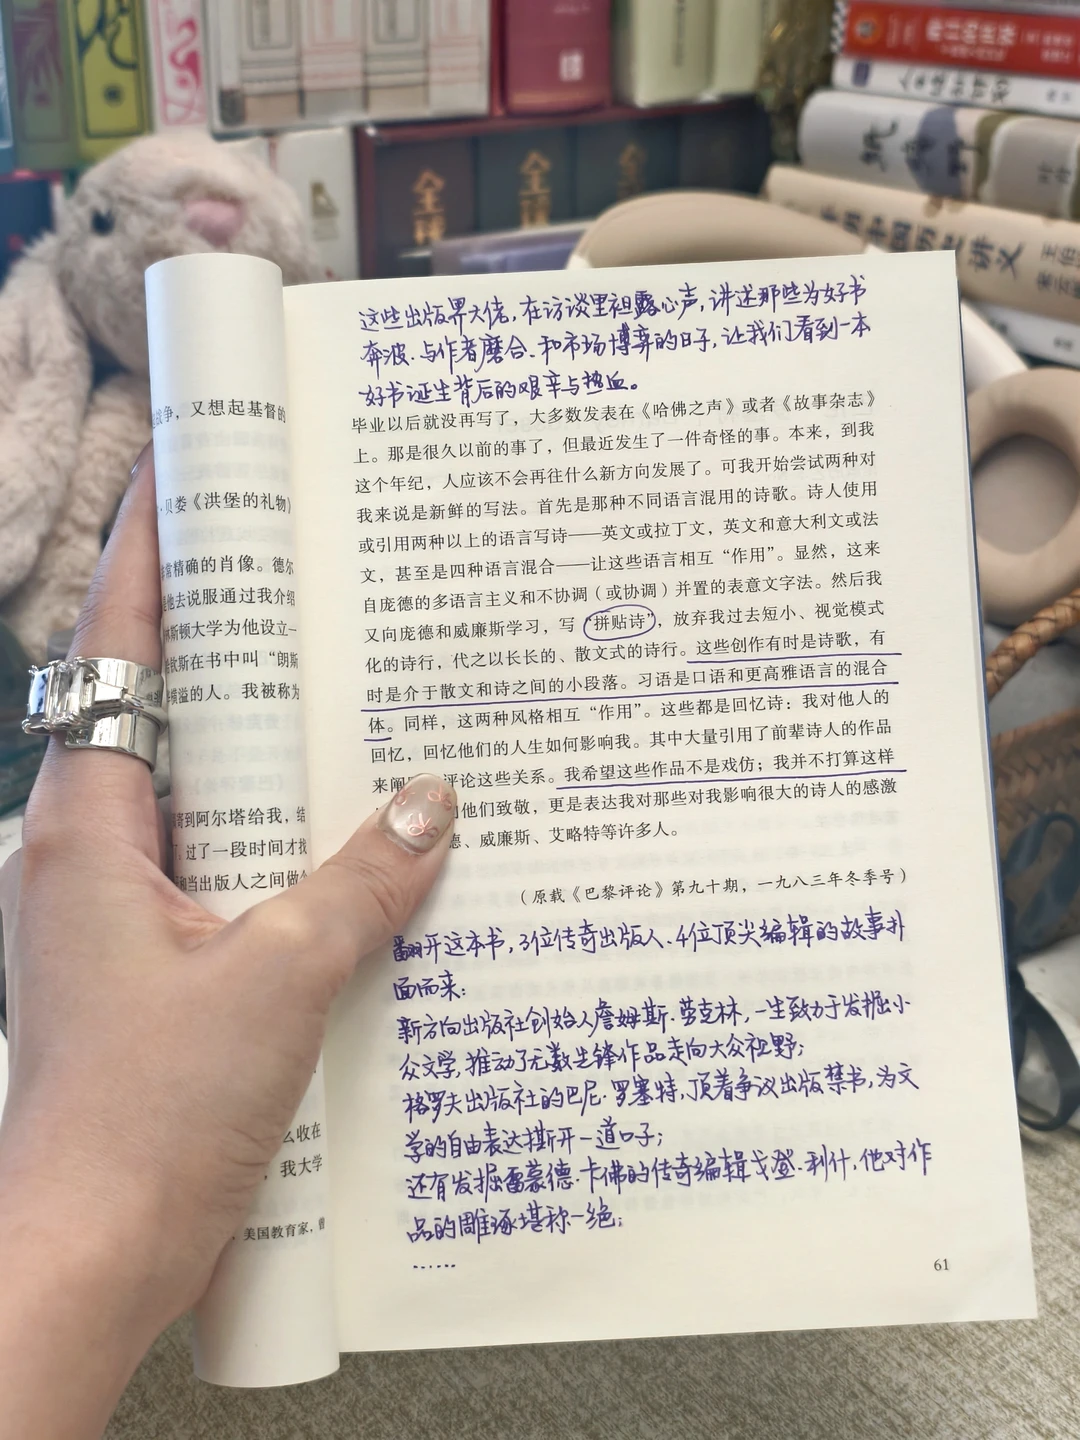 全译
全译
全
中国历史讲义
战争，又想起基督的
·贝娄《洪堡的礼物》
常精确的肖像。德尔
他去说服通过我介绍
林斯顿大学为他设立一
哈钦斯在书中叫“朗斯
横溢的人。我被称为
寄到阿尔塔给我，结
了；过了一段时间才找
和当出版人之间做个
么收在
，我大学
，美国教育家，曾
这些出版界大佬，在访谈里袒露心声，讲述那些为好书
奔波、与作者磨合、和市场博弈的日子，让我们看到一本
好书诞生背后的艰辛与热血。
毕业以后就没再写了，大多数发表在《哈佛之声》或者《故事杂志》
上。那是很久以前的事了，但最近发生了一件奇怪的事。本来，到我
这个年纪，人应该不会再往什么新方向发展了。可我开始尝试两种对
我来说是新鲜的写法。首先是那种不同语言混用的诗歌。诗人使用
或引用两种以上的语言写诗——英文或拉丁文，英文和意大利文或法
文，甚至是四种语言混合——让这些语言相互“作用”。显然，这来
自庞德的多语言主义和不协调（或协调）并置的表意文字法。然后我
又向庞德和威廉斯学习，写“拼贴诗”，放弃我过去短小、视觉模式
化的诗行，代之以长长的、散文式的诗行。这些创作有时是诗歌，有
时是介于散文和诗之间的小段落。习语是口语和更高雅语言的混合
体。同样，这两种风格相互“作用”。这些都是回忆诗：我对他人的
回忆，回忆他们的人生如何影响我。其中大量引用了前辈诗人的作品
来阐 评论这些关系。我希望这些作品不是戏仿；我并不打算这样
他们致敬，更是表达我对那些对我影响很大的诗人的感激
德、威廉斯、艾略特等许多人。
（原载《巴黎评论》第九十期，一九八三年冬季号）
翻开这本书，3位传奇出版人、4位顶尖编辑的故事扑
面而来：
新方向出版社创始人詹姆斯·劳克林，一生致力于发掘小
众文学，推动了无数先锋作品走向大众视野；
格罗夫出版社的巴尼·罗塞特，顶着争议出版禁书，为文
学的自由表达撕开一道口子；
还有发掘雷蒙德·卡佛的传奇编辑戈登·利什，他对作
品的雕琢堪称一绝；
……
61